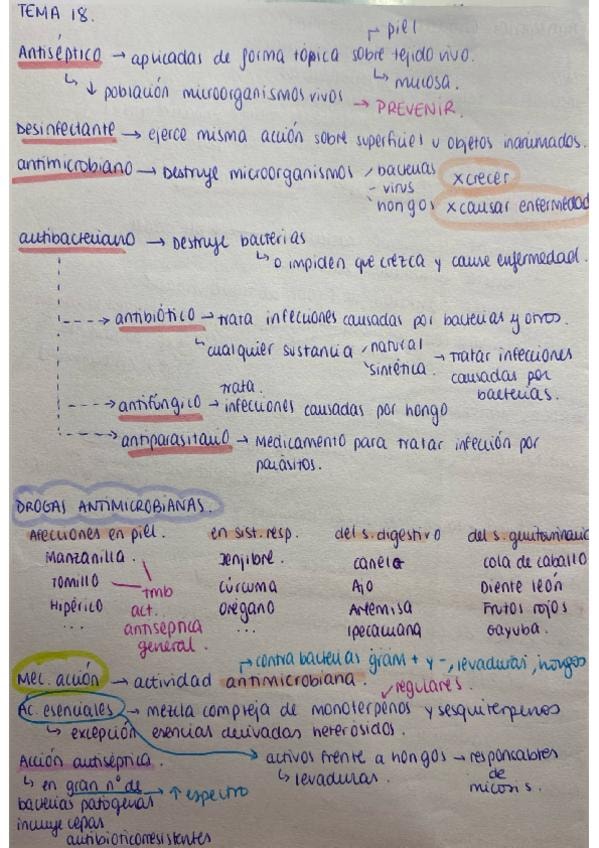 TEMA 18.
piel
Antiséptico → aplicadas de forma tópica sobre tejido vivo.
mucosa.
↳ ↓ población microorganismos vivos → PREVENIR.
Desinfectante → ejerce misma acción sobre superficies u objetos inanimados.
antimicrobiano → Destruye microorganismos bacterias x crecer
- virus
hongos x causar enfermedad
antibacteriano → Destruye bacterias
↳ o impiden que crezca y cause enfermedad.
---> antibiótico → trata infecciones causadas por bacterias y otros.
↳ cualquier sustancia natural → tratar infecciones
sintética. causadas por
bacterias.
trata.
---> antifúngico → infecciones causadas por hongo
---> antiparasitario → Medicamento para tratar infección por
parásitos.
DROGAS ANTIMICROBIANAS.
Afecciones en piel. en sist. resp. del s. digestivo del s. genitourinario
Manzanilla. Jenjibre. canela cola de caballo
Tomillo tmb cúrcuma Ajo Diente león
Hipérico act. Orégano Artemisa Frutos rojos
... antiséptica ... Ipecacuana Gayuba.
general.
contra bacterias gram + y -, levaduras, hongos
Mec. acción → actividad antimicrobiana.
regulares.
Ac. esenciales → mezcla compleja de monoterpenos y sesquiterpenos
↳ excepción esencias derivadas heterósidos.
Acción antiséptica. → activos frente a hongos → responsables
↳ en gran nº de → ↑ espectro ↳ levaduras. de
bacterias patógenas micosis.
incluye cepas
antibioticorresistentes